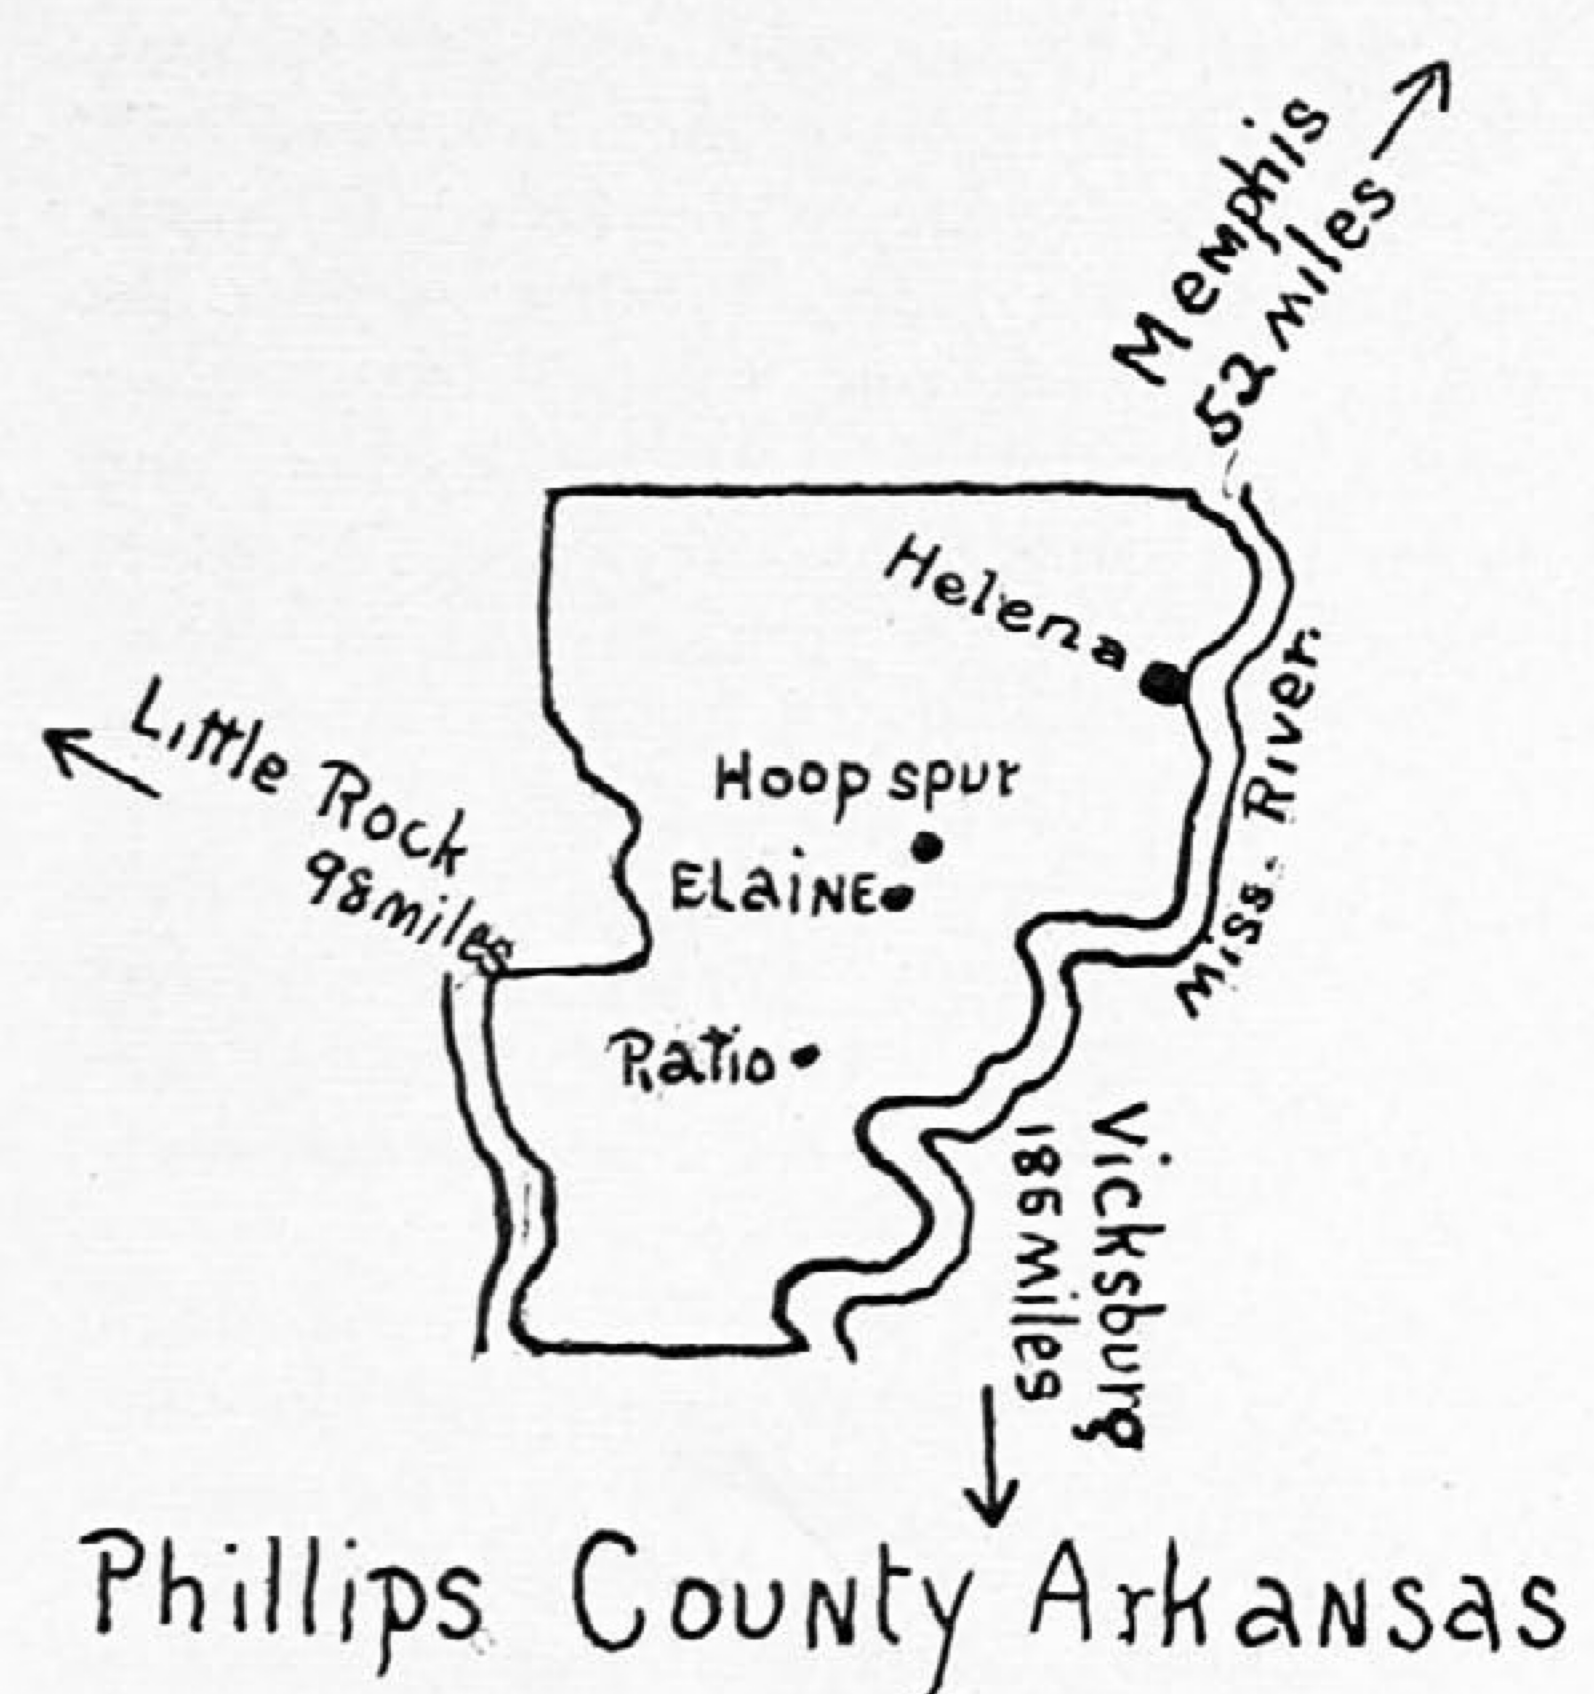 Memphis
52 miles
Helena
Miss. River
Little Rock
98 miles
Hoop spur
ELaiNE
Ratio
Vicksburg
186 miles
Phillips County Arkansas